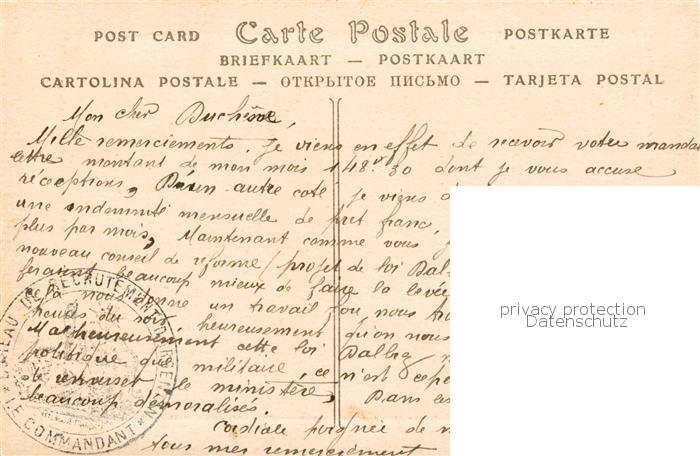 POST CARD Carte Postale POSTKARTE
BRIEFKAART — POSTKAART
CARTOLINA POSTALE — ОТКРЫТОЕ ПИСЬМО — TARJETA POSTAL
Mon cher Duchêne,
Mille remerciements. Je viens en effet de recevoir votre mandat
lettre montant de mon mois 148 30 dont je vous accuse
réceptions, autre coté je viens
une indemnité mensuelle de franc,
plus par mois, Maintenant comme vous
nouveau conseil de reforme / projet de loi Dalb
feraient beaucoup mieux de faire la levée
cela nous donne un travail fou nous
heures du soir heureusement qu'on nous
Malheureusement cette loi Dalbiez
politique que militaire, ce n'est
le renverser le ministère, Dans
beaucoup démoralisés.
Cordiale poignée de
tous mes remerciements
BUREAU DE RECRUTEMENT
LE COMMANDANT
privacy protection
Datenschutz